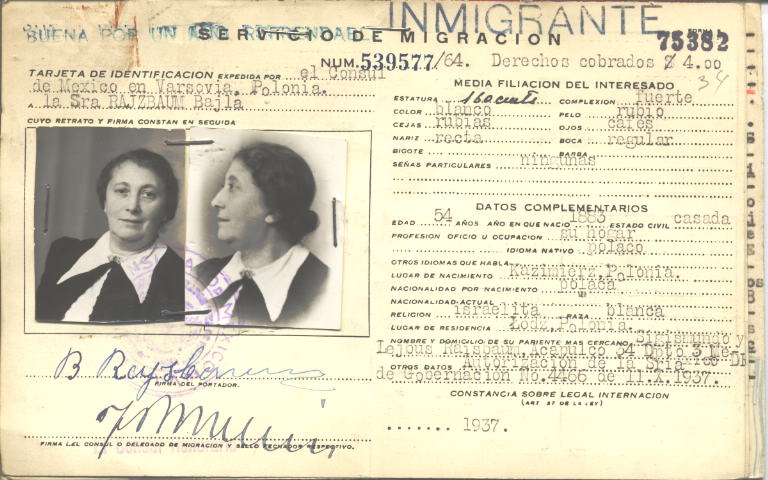 INMIGRANTE
BUENA POR UN AÑO REFRENDABLE
SERVICIO DE MIGRACION
FORMA
75382
NUM. 539577/64. Derechos cobrados $ 4.00
34
TARJETA DE IDENTIFICACION EXPEDIDA POR el Consul
de Mexico en Varsovia, Polonia.
a la Sra RAJZBAUM Bajla
CUYO RETRATO Y FIRMA CONSTAN EN SEGUIDA
FIRMA DEL PORTADOR.
FIRMA DEL CONSUL O DELEGADO DE MIGRACION Y SELLO FECHADOR RESPECTIVO.
MEDIA FILIACION DEL INTERESADO
ESTATURA 160 cents COMPLEXION fuerte
COLOR blanco PELO rubio
CEJAS rubias OJOS cafes
NARIZ recta BOCA regular
BIGOTE BARBA
SEÑAS PARTICULARES ningunas
DATOS COMPLEMENTARIOS
EDAD 54 AÑOS AÑO EN QUE NACIO 1883 ESTADO CIVIL casada
PROFESION OFICIO U OCUPACION su hogar
IDIOMA NATIVO polaco
OTROS IDIOMAS QUE HABLA
LUGAR DE NACIMIENTO Kazimierz, Polonia.
NACIONALIDAD POR NACIMIENTO polaca
NACIONALIDAD ACTUAL
RELIGION israelita RAZA blanca
LUGAR DE RESIDENCIA Łodz, Polonia.
NOMBRE Y DOMICILIO DE SU PARIENTE MAS CERCANO Sigismundo y
Lejbus Raisbaum, Acapulco 34 Dpto 3 Me-
OTROS DATOS Autorizacion de la Sria xico DF
de Gobernacion No. 4466 de 11.X.1937.
CONSTANCIA SOBRE LEGAL INTERNACION
(ART. 57 DE LA LEY)
1937.